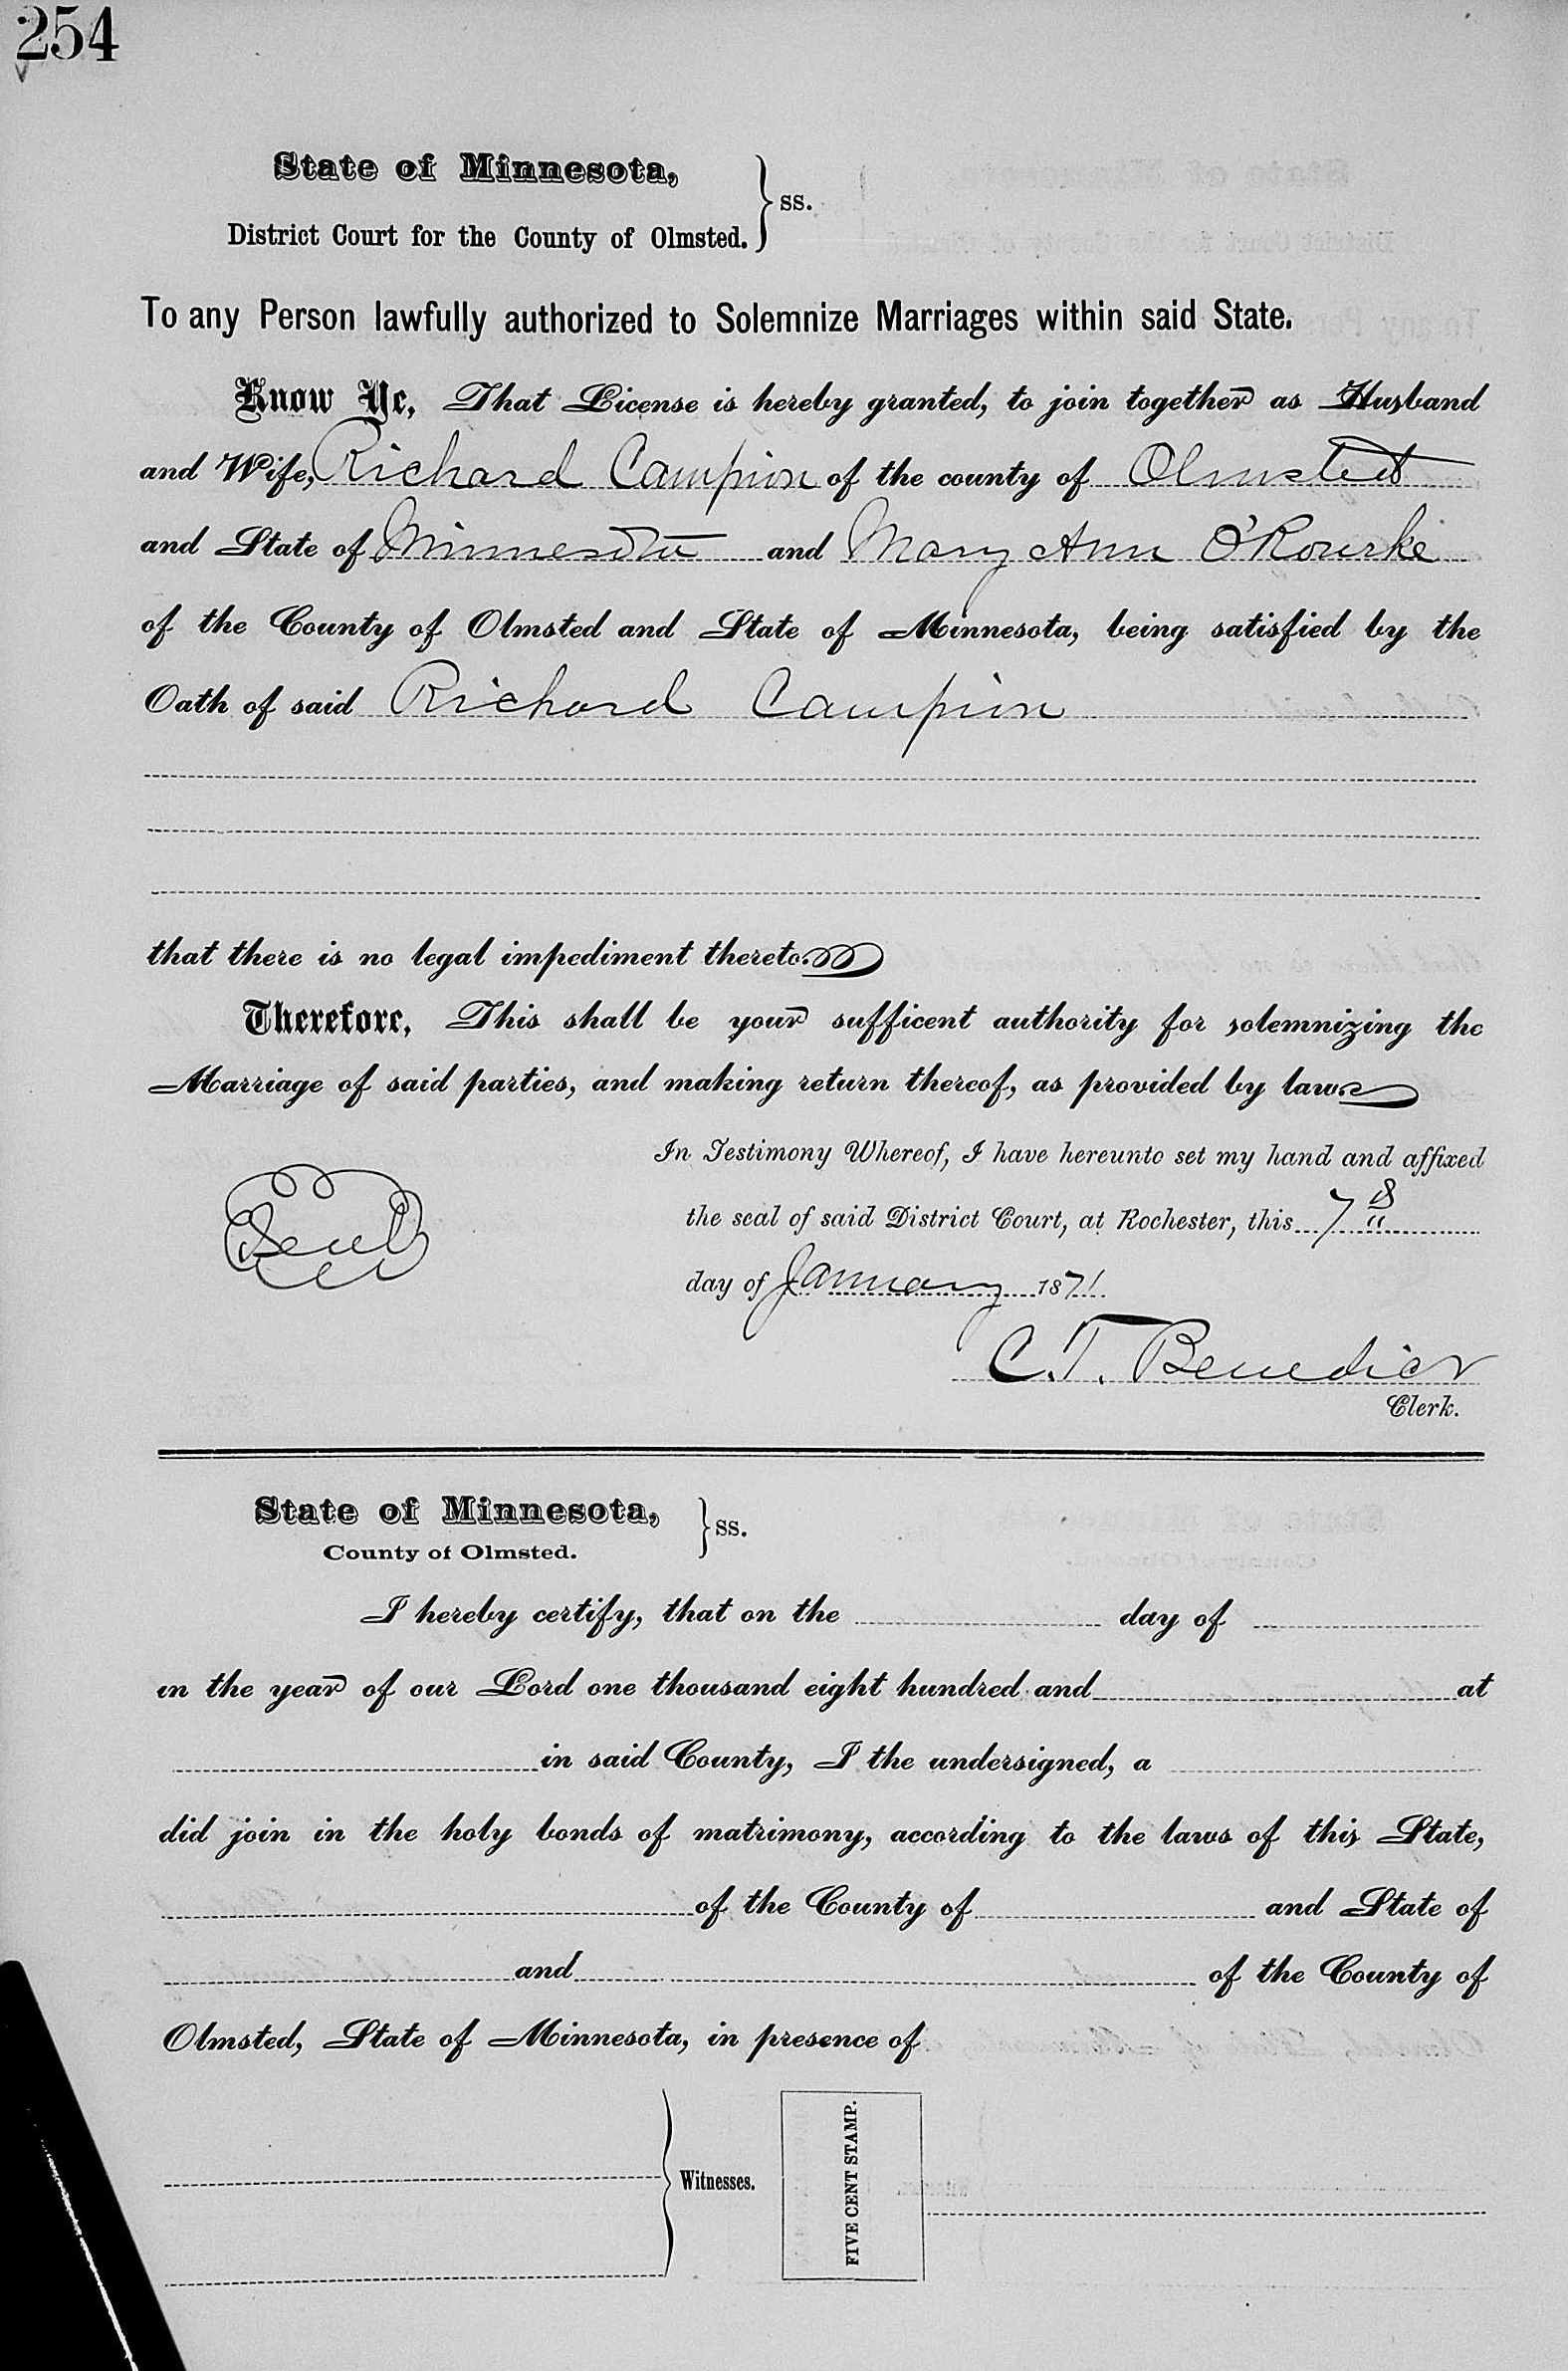 254
State of Minnesota,
District Court for the County of Olmsted. } ss.
To any Person lawfully authorized to Solemnize Marriages within said State.
Know Ye, That License is hereby granted, to join together as Husband
and Wife, Richard Campion of the county of Olmsted
and State of Minnesota and Mary Ann O'Rourke
of the County of Olmsted and State of Minnesota, being satisfied by the
Oath of said Richard Campion
that there is no legal impediment thereto.
Therefore, This shall be your sufficent authority for solemnizing the
Marriage of said parties, and making return thereof, as provided by law.
In Testimony Whereof, I have hereunto set my hand and affixed
Seal
the seal of said District Court, at Rochester, this 7
day of January 1871.
C. T. Benedict
Clerk.
State of Minnesota,
County of Olmsted. } ss.
I hereby certify, that on the day of
in the year of our Lord one thousand eight hundred and at
in said County, I the undersigned, a
did join in the holy bonds of matrimony, according to the laws of this State,
of the County of and State of
and of the County of
Olmsted, State of Minnesota, in presence of
Witnesses.
FIVE CENT STAMP.